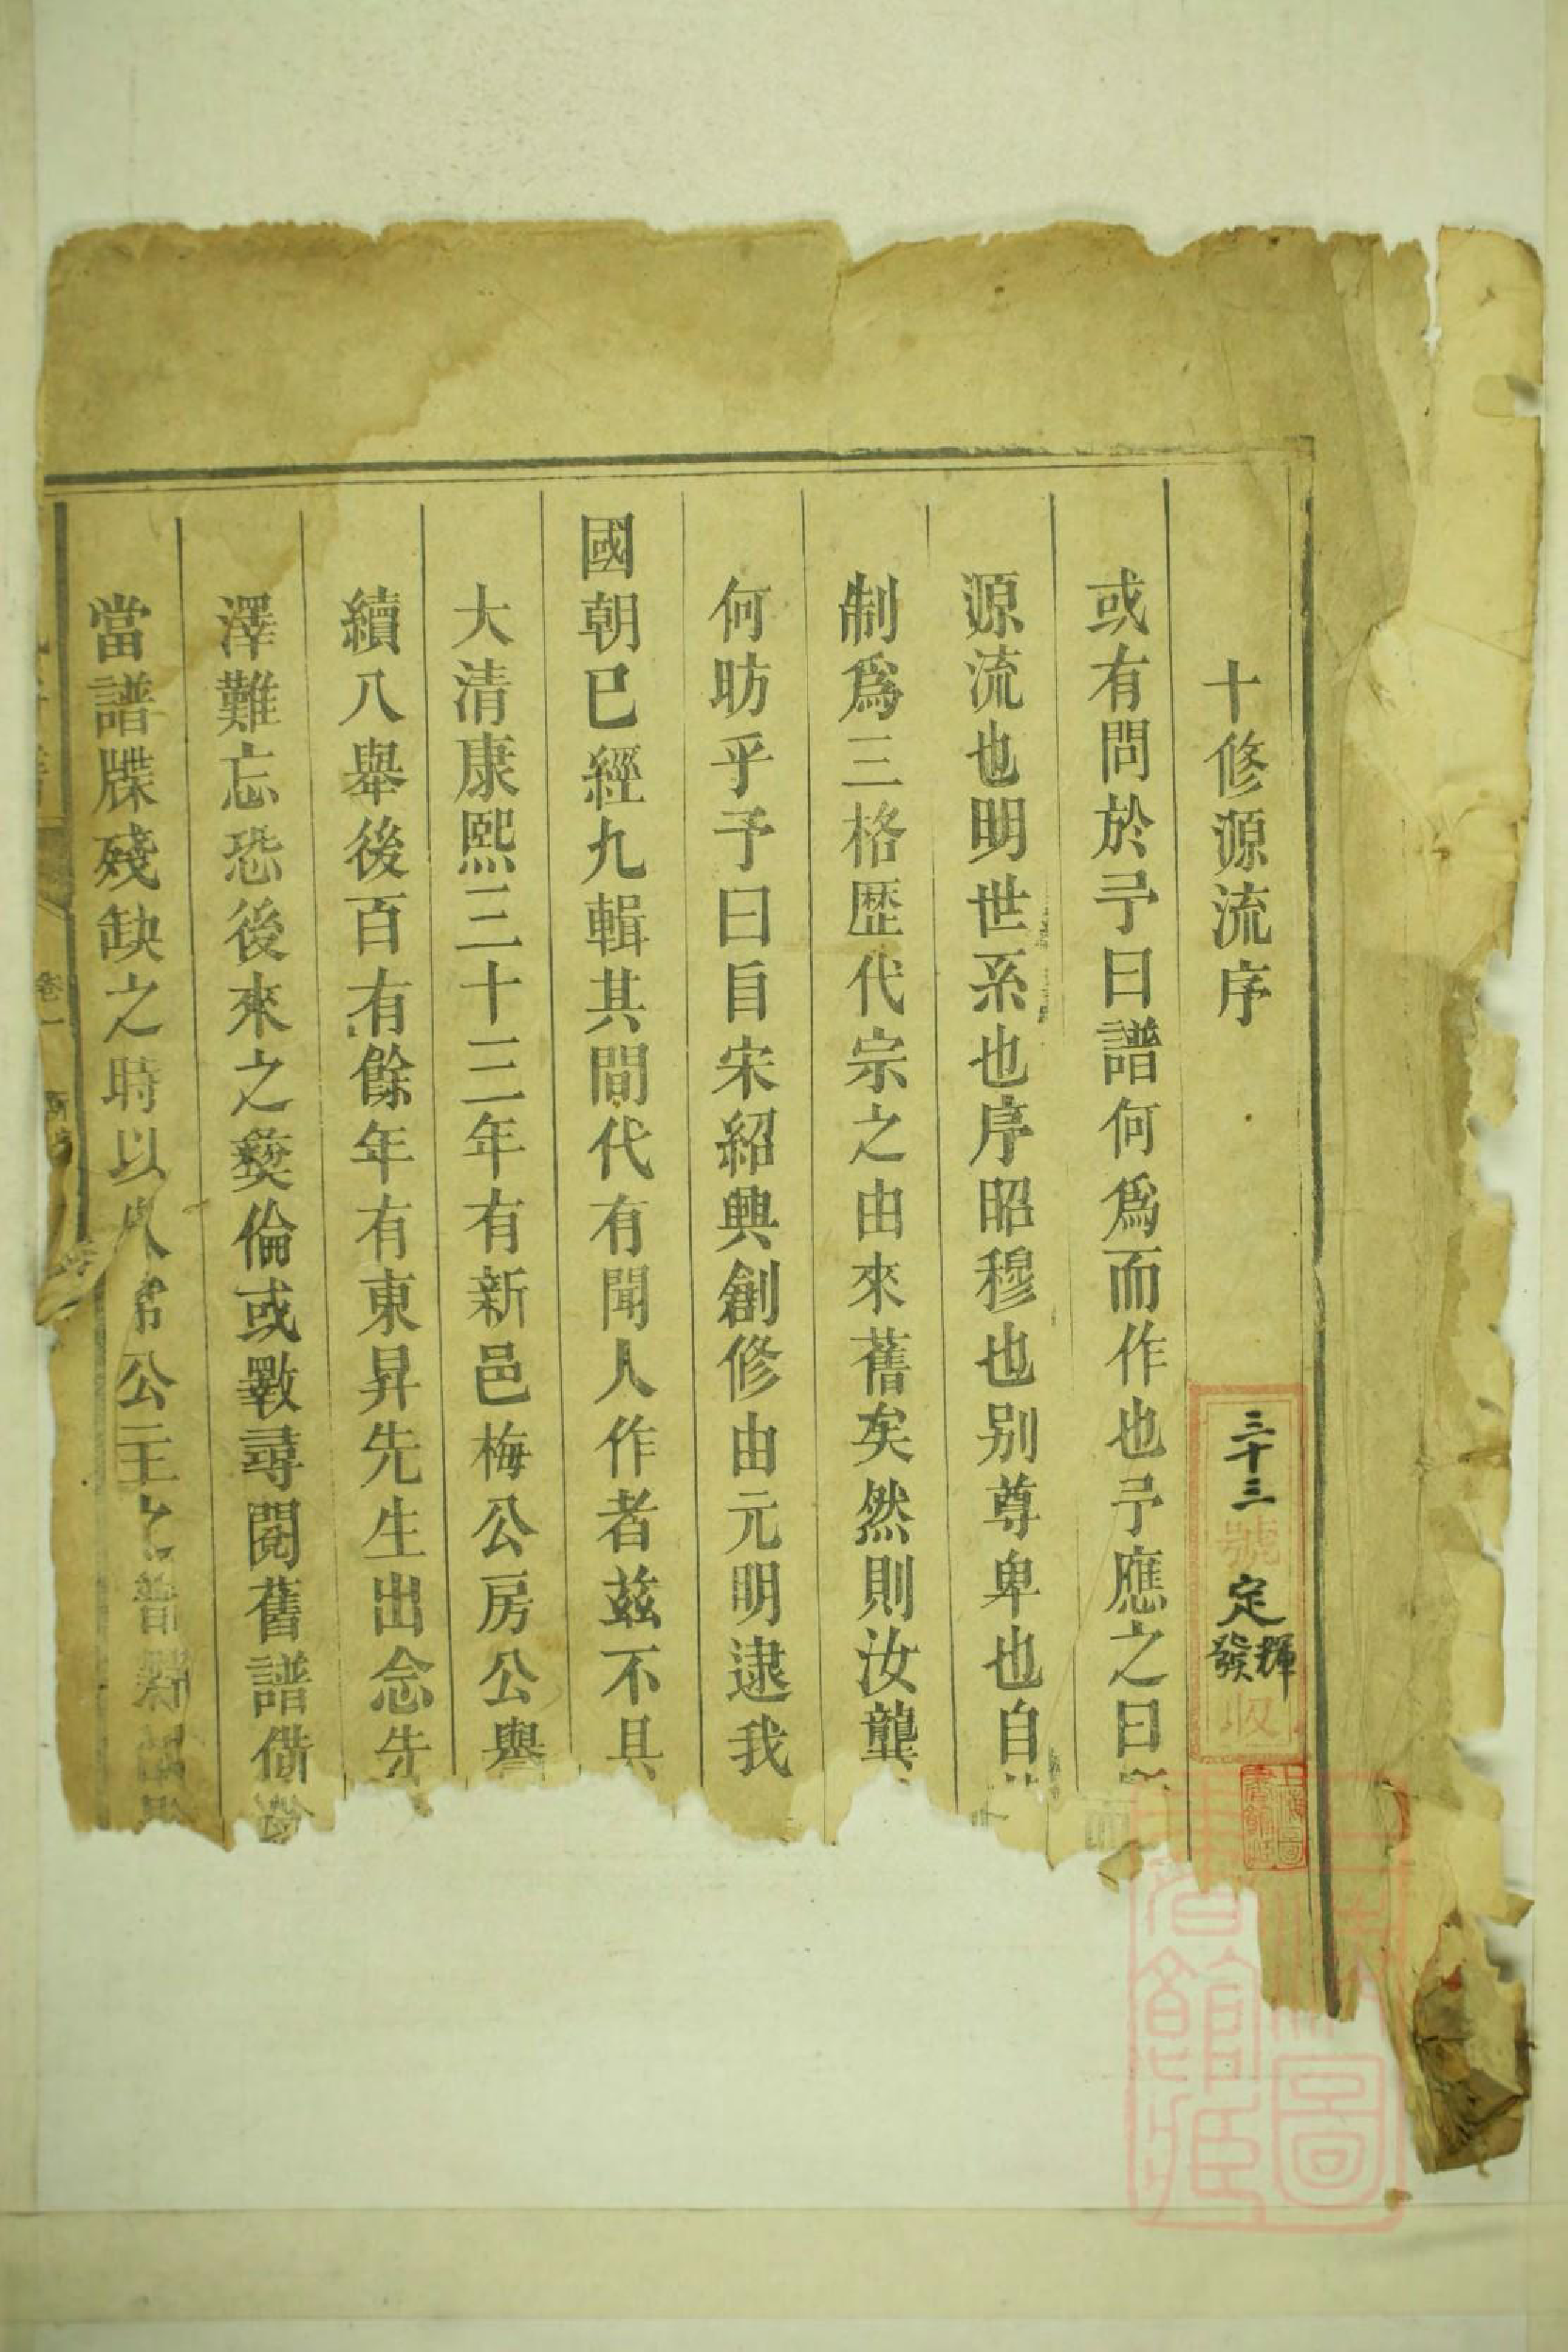 十修源流序
三十三號 定輝發收
或有問於予曰譜何爲而作也予應之曰
源流也明世系也序昭穆也别尊卑也自
制爲三格歷代宗之由來舊矣然則汝龔
何昉乎予曰自宋紹興創修由元明逮我
國朝已經九輯其間代有聞人作者茲不具
大清康熙三十三年有新邑梅公房公舉
續八舉後百有餘年有東昇先生出念先
澤難忘恐後來之彜倫或斁尋閱舊譜借
當譜牒殘缺之時以 公 之
卷一
上海圖書館藏
上海圖書館藏